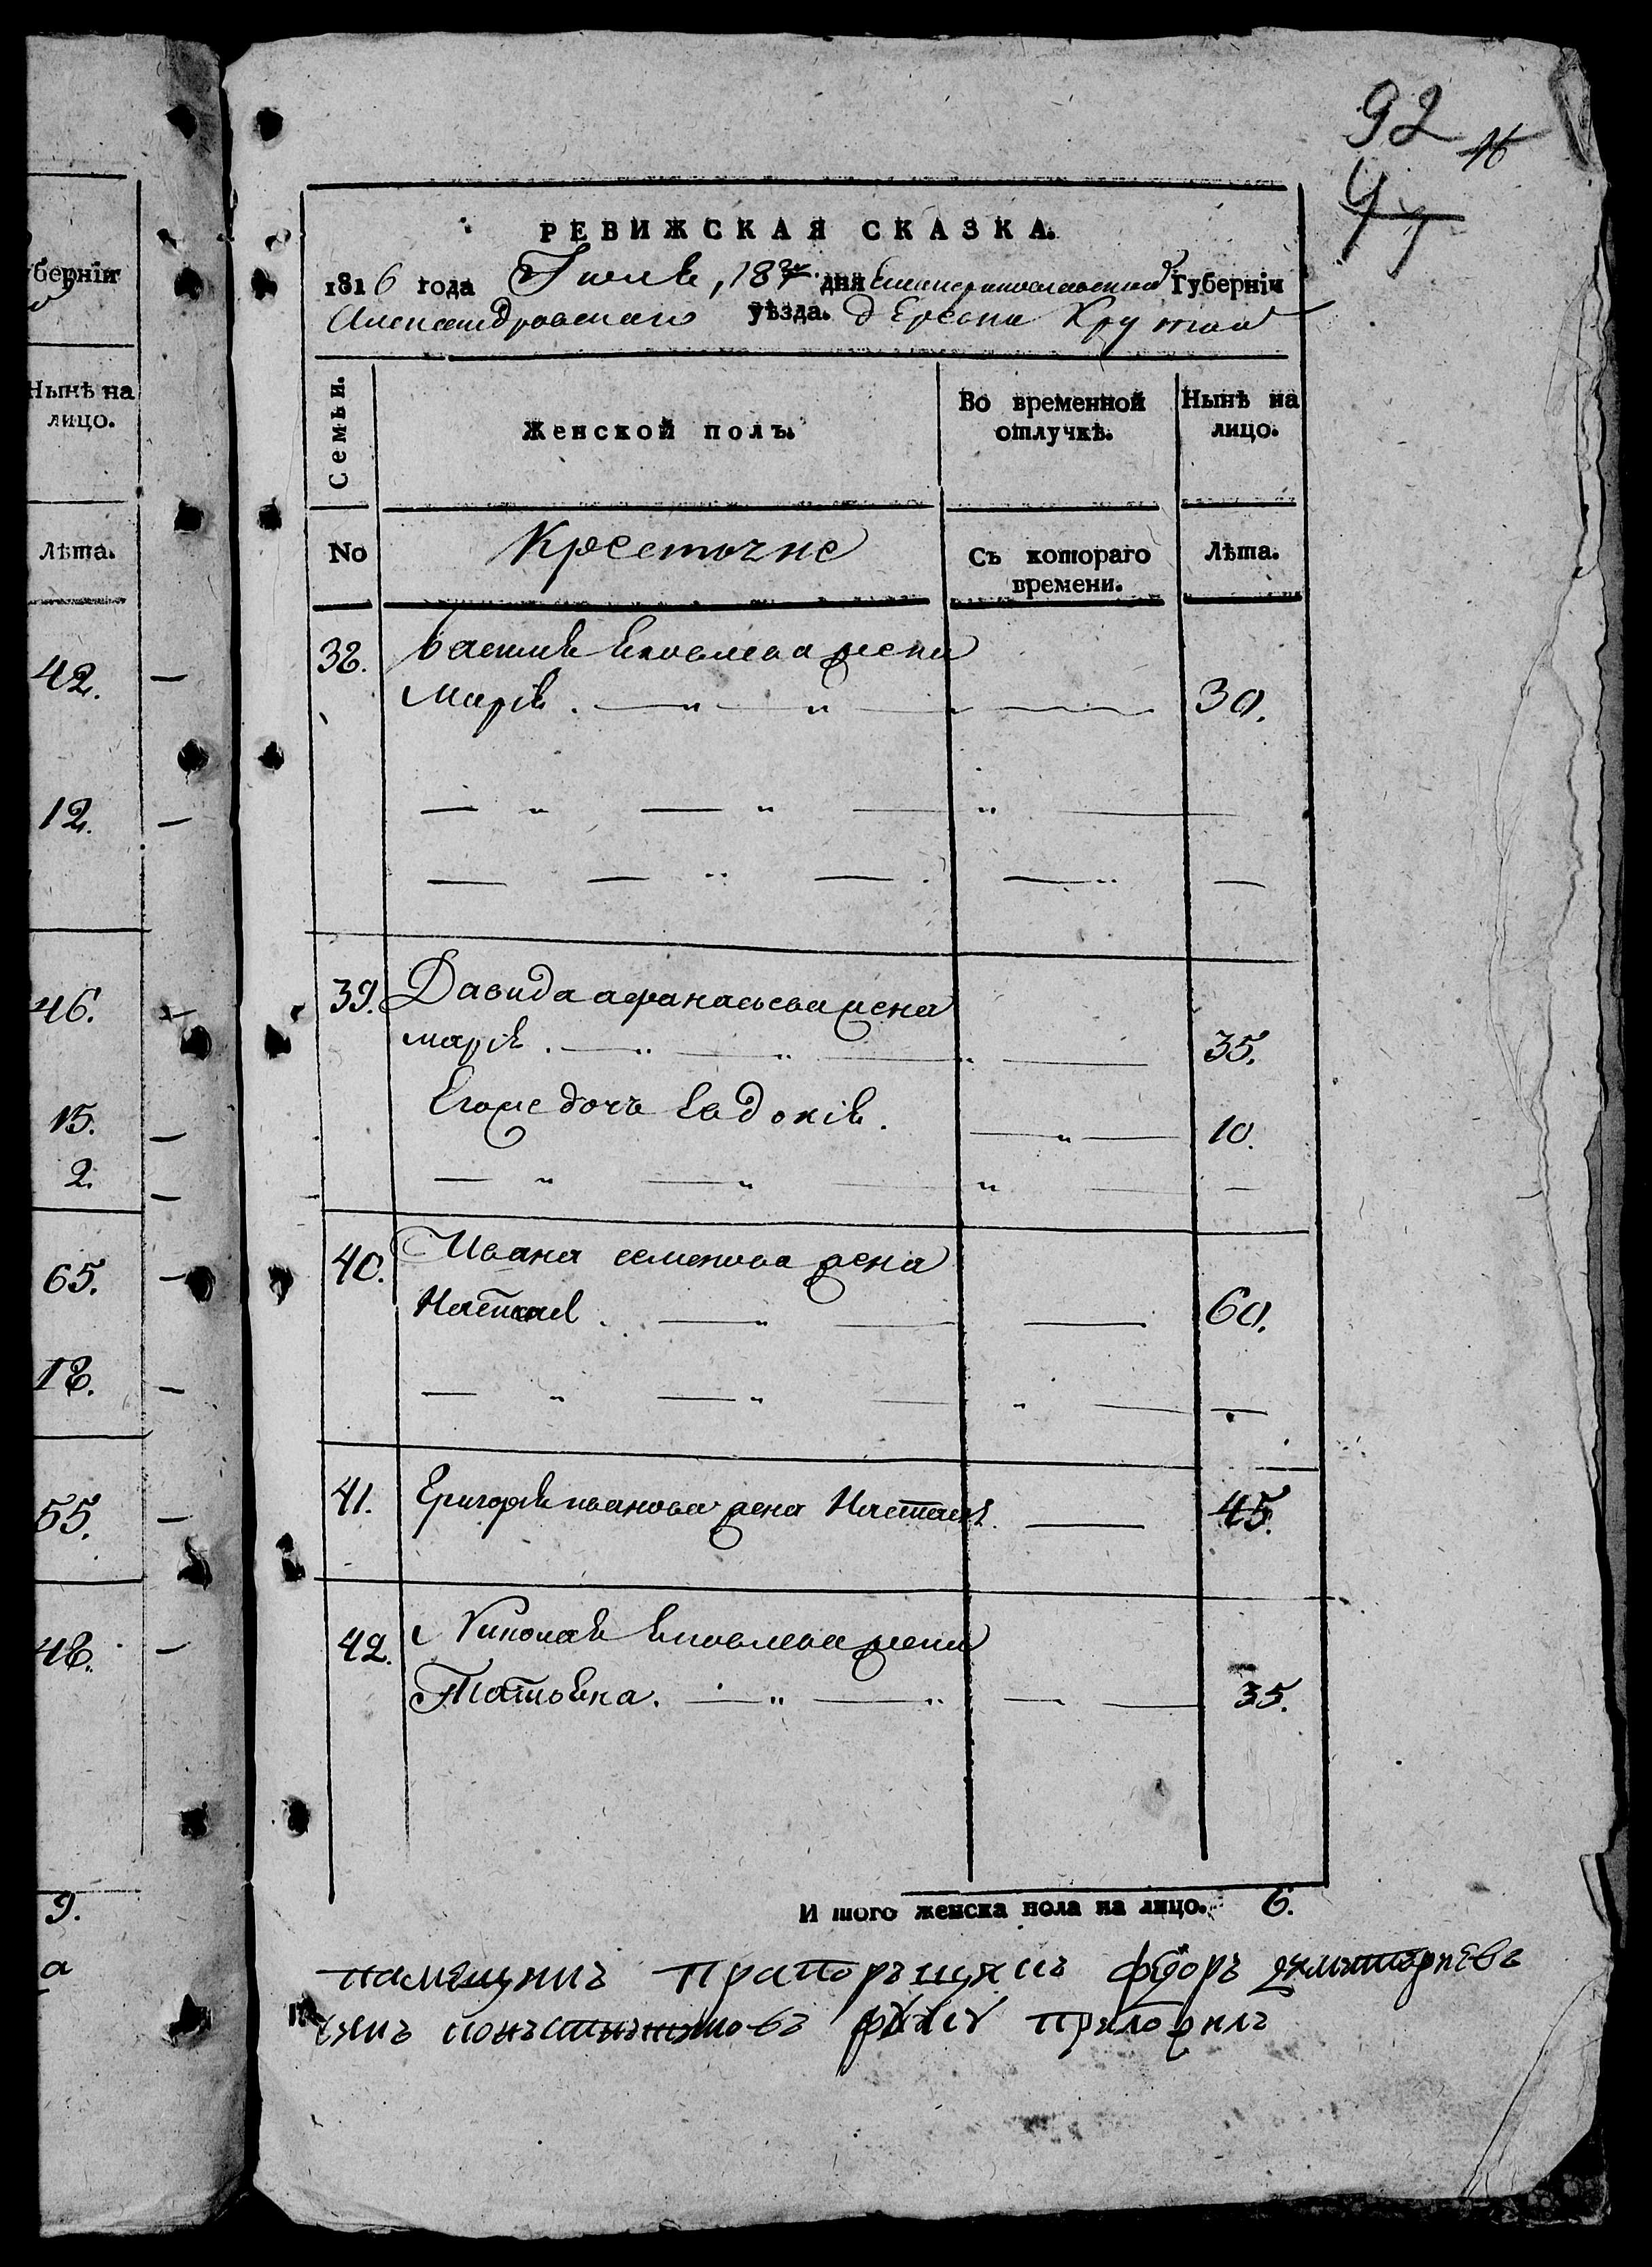 92
губерніи
Нынѣ на
лицо.
Лѣта.
42.
12.
46.
15.
2.
65.
18.
55.
48.
9.
а
РЕВИЖСКАЯ СКАЗКА.
1816 года Іюля, 18го дня Екатеринославской Губерніи
Александровскаго уѣзда. деревни Крутой
Семьи. Женской полъ. Во временной отлучкѣ. Нынѣ на лицо.
No Крестьяне Съ котораго времени. Лѣта.
38. Василя Яковлева жена
Марія. 30.
39. Давида афанасьева жена
марія. 35.
Егоже дочь Евдокія. 10.
40. Ивана семенова жена
Настасія. 60.
41. Григорія иванова жена Настасія. 45.
42. Николая Яковлева жена
Татьяна. 35.
И того женска пола на лицо. 6.
памещикъ прапорьщикъ фѣдоръ димиториевъ
сынъ руку приложилъ